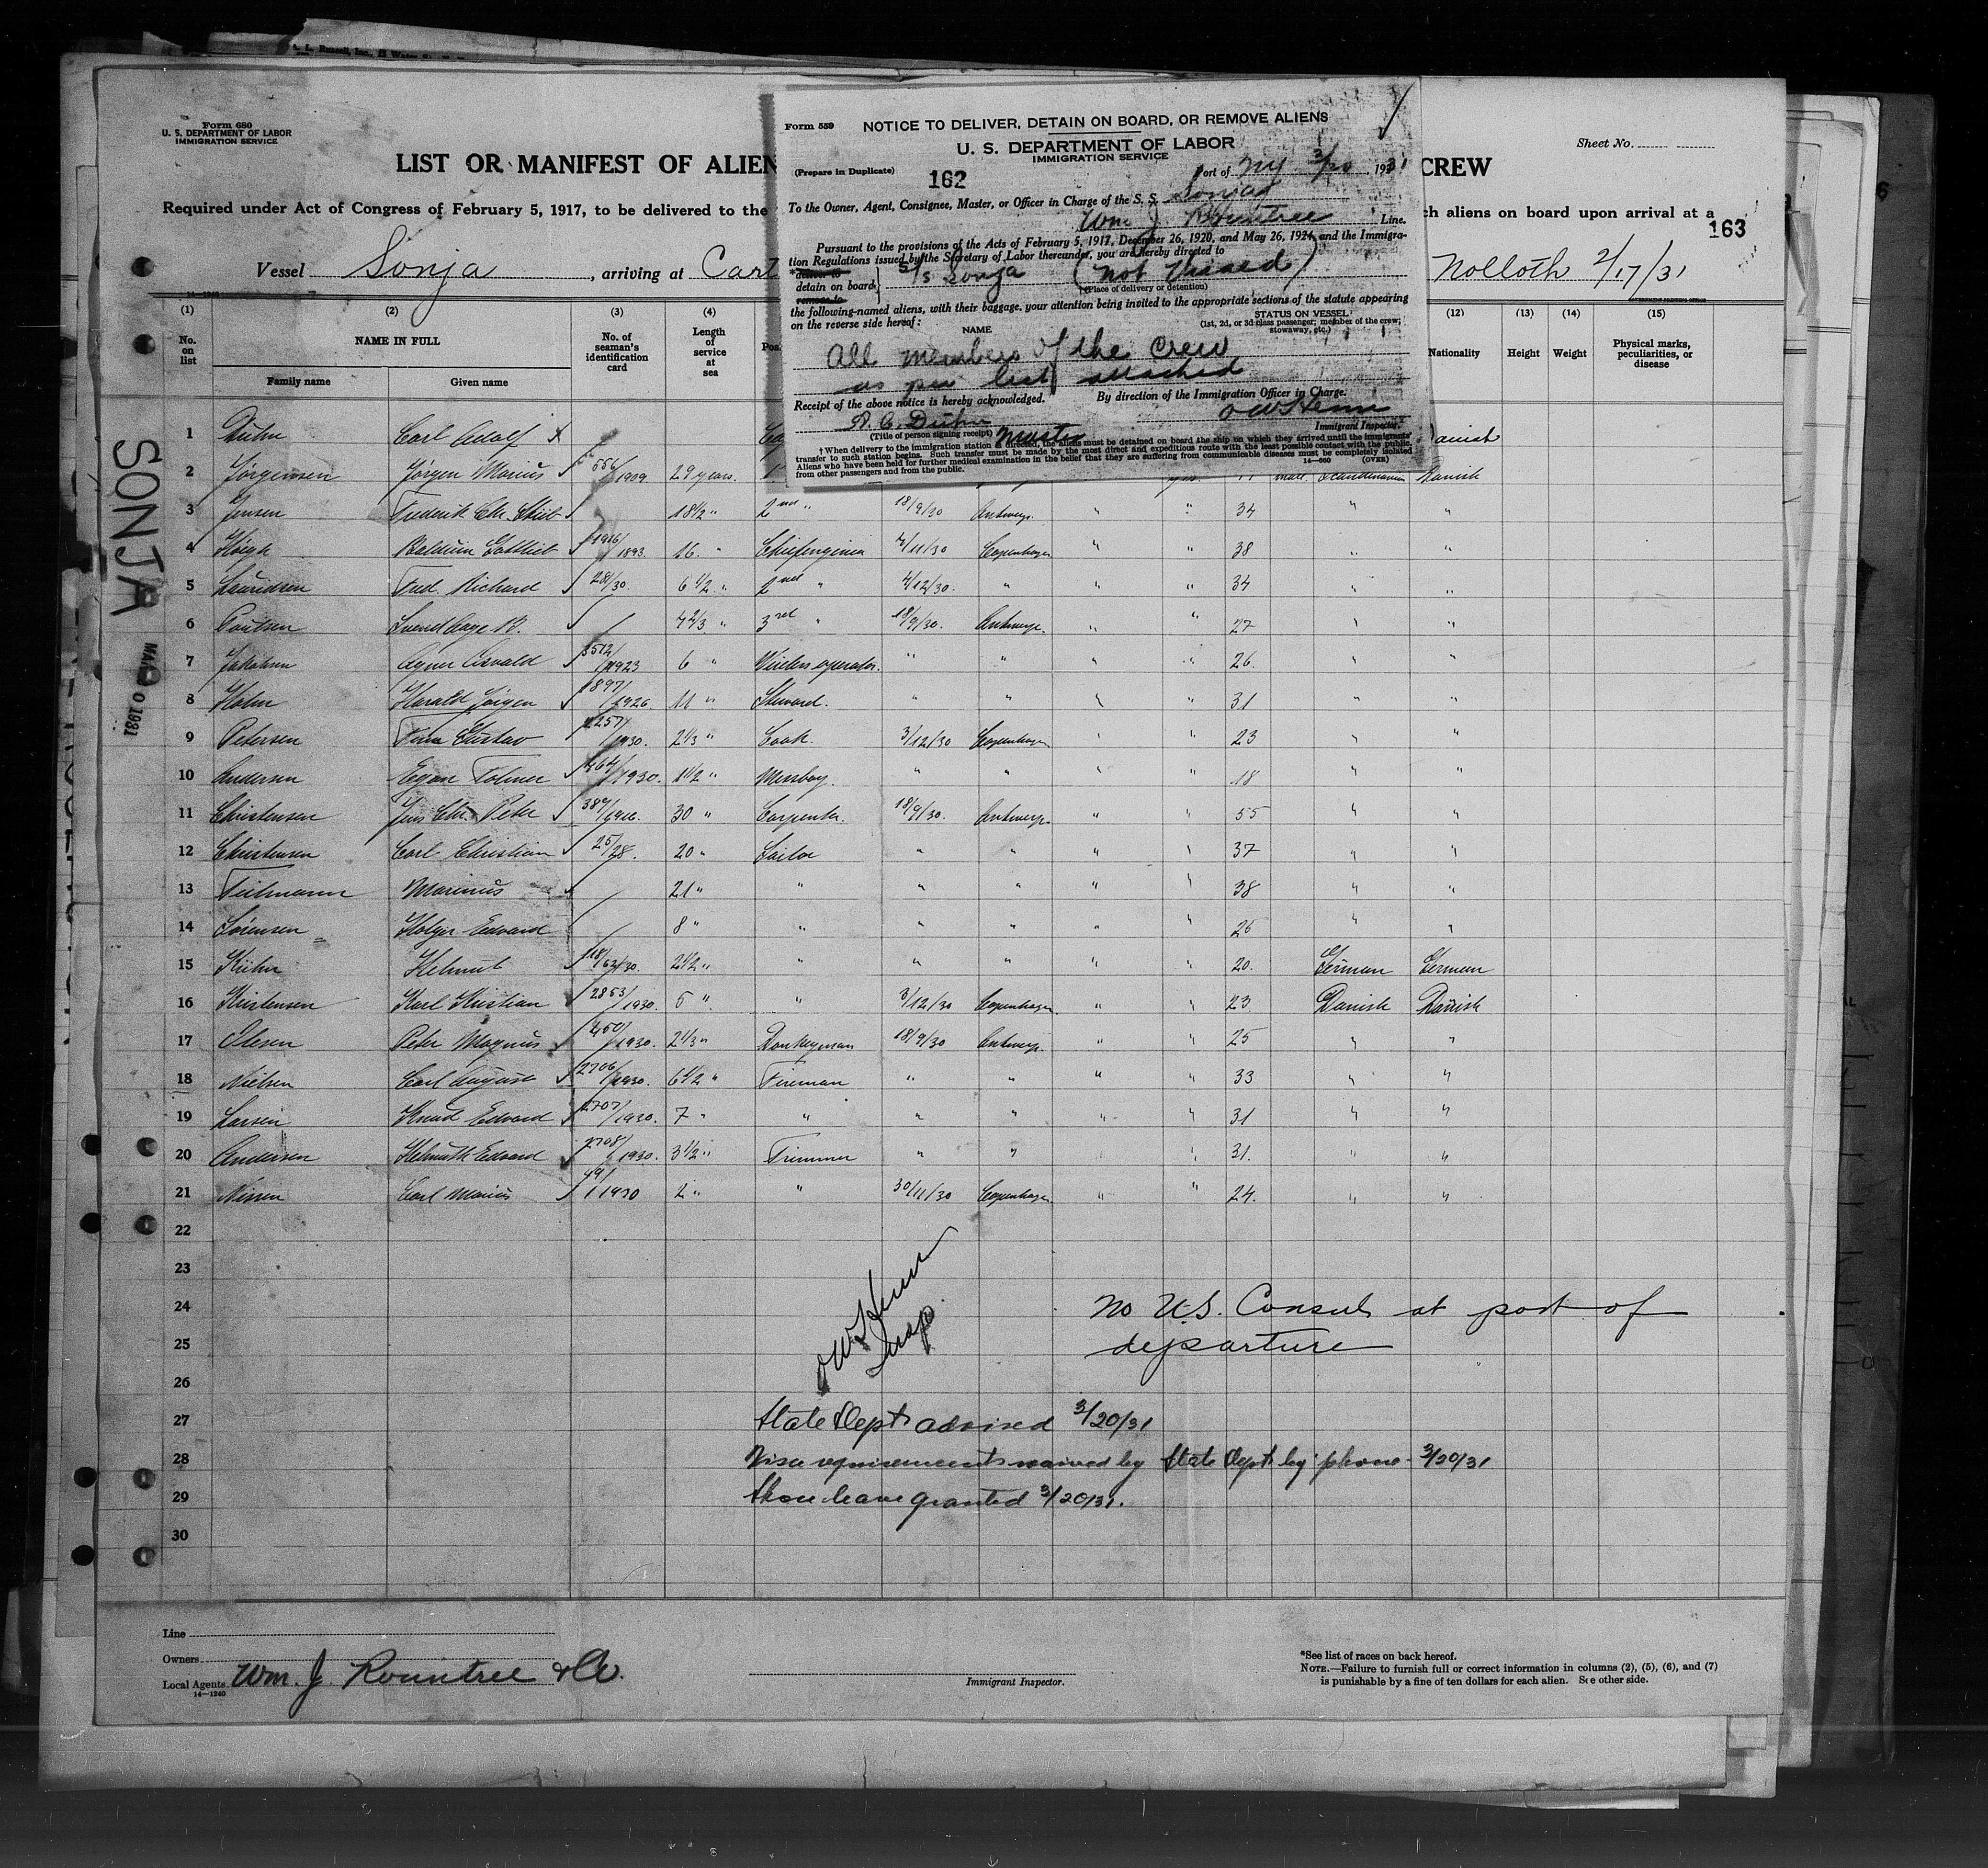 A. L. Russell, Inc., 2 Water St.
Form 680
U. S. DEPARTMENT OF LABOR
IMMIGRATION SERVICE
Sheet No.
LIST OR MANIFEST OF ALIEN CREW
Required under Act of Congress of February 5, 1917, to be delivered to the ch aliens on board upon arrival at a
163
Vessel Sonja, arriving at Cart Nolloth 2/17/31
Form 559 NOTICE TO DELIVER, DETAIN ON BOARD, OR REMOVE ALIENS
U. S. DEPARTMENT OF LABOR
IMMIGRATION SERVICE
(Prepare in Duplicate) 162 Port of NY 3/20 1931
To the Owner, Agent, Consignee, Master, or Officer in Charge of the S. S. Sonja
Wm J. Rountree Line.
Pursuant to the provisions of the Acts of February 5, 1917, December 26, 1920, and May 26, 1924, and the Immigra-
tion Regulations issued by the Secretary of Labor thereunder, you are hereby directed to
*deliver to
detain on board S/S Sonja (not visaed)
remove to
(Place of delivery or detention)
the following-named aliens, with their baggage, your attention being invited to the appropriate sections of the statute appearing
on the reverse side hereof:
NAME
STATUS ON VESSEL
(1st, 2d, or 3d class passenger; member of the crew;
stowaway, etc.)
All members of the Crew
as per list attached
Receipt of the above notice is hereby acknowledged. By direction of the Immigration Officer in Charge.
(Title of person signing receipt) Master Immigrant Inspector.
† When delivery to the immigration station is directed, the aliens must be detained on board the ship on which they arrived until the immigrants'
transfer to such station begins. Such transfer must be made by the most direct and expeditious route with the least possible contact with the public.
Aliens who have been held for further medical examination in the belief that they are suffering from communicable diseases must be completely isolated
from other passengers and from the public. 14—660 (OVER)
(1) (2) (3) (4) (12) (13) (14) (15)
No. on list NAME IN FULL No. of seaman's identification card Length of service at sea Pos Nationality Height Weight Physical marks, peculiarities, or disease
Family name Given name
1 Duhn Carl Adolf Danish
2 Jørgensen Jørgen Marius 556/1909 29 years. male Scandinavian Danish
3 Jensen Frederik Chr. 18 1/2 " 2nd " 18/9/30 Antwerp. " " 34 " "
4 Høegh Balduin Gottlieb 1916/1893 16 " Chiefengineer 4/11/30 Copenhagen " " 38 " "
5 Lauridsen Fred. Richard 281/30. 6 1/2 " 2nd " 4/12/30. " " " 34 " "
6 Poulsen Svend Aage R. 4 2/3 " 3rd " 18/9/30. Antwerp. " " 27 " "
7 Jakobsen Agner Osvald 3512/1923 6 " Wireless operator. " " " " 26 " "
8 Holm Harald Jørgen 1897/1926. 11 " Steward. " " " " 31 " "
9 Petersen Gustav 1257/1930. 2 1/3 " Cook. 3/12/30 Copenhagen " " 23 " "
10 Andersen Egon Folmer 464/1930. 1 1/2 " Messboy. " " " " 18 " "
11 Christensen Jens Chr. Peter 389/1916. 30 " Carpenter. 18/9/30. Antwerp. " " 55 " "
12 Christensen Carl Christian 25/28. 20 " Sailor " " " " 37 " "
13 Teilmann Marinus 21 " " " " " " 38 " "
14 Sørensen Holger Edvard 8 " " " " " " 26 " "
15 Kühn Helmut 118/62/30. 2 1/2 " " " " " " 20. German German
16 Kristensen Karl Kristian 2853/1930. 5 " " 3/12/30 Copenhagen. " " 23. Danish Danish
17 Olesen Peter Magnus 450/1930. 2 1/3 " Donkeyman 18/9/30 Antwerp. " " 25 " "
18 Nielsen Carl August 2706/1930. 6 1/2 " Fireman " " " " 33 " "
19 Larsen Knud Edvard 2707/1930. 7 " " " " " " 31 " "
20 Andersen Helmuth Edvard 2708/1930. 3 1/2 " Trimmer " " " 31. " "
21 Nissen Carl Marius 491/1930 2 " " 30/11/30 Copenhagen " " 24. " "
22
23
24 No U.S. Consul at port of
25 departure
26
27 State Dept advised 3/20/31
28 Visa requirements waived by State Dept by phone 3/20/31
29 Shore leave granted 3/20/31.
30
SONJA
MAR 20 1931
Line
Owners
Local Agents Wm. J. Rountree & Co.
14—1240
Immigrant Inspector.
*See list of races on back hereof.
NOTE.—Failure to furnish full or correct information in columns (2), (5), (6), and (7)
is punishable by a fine of ten dollars for each alien. See other side.